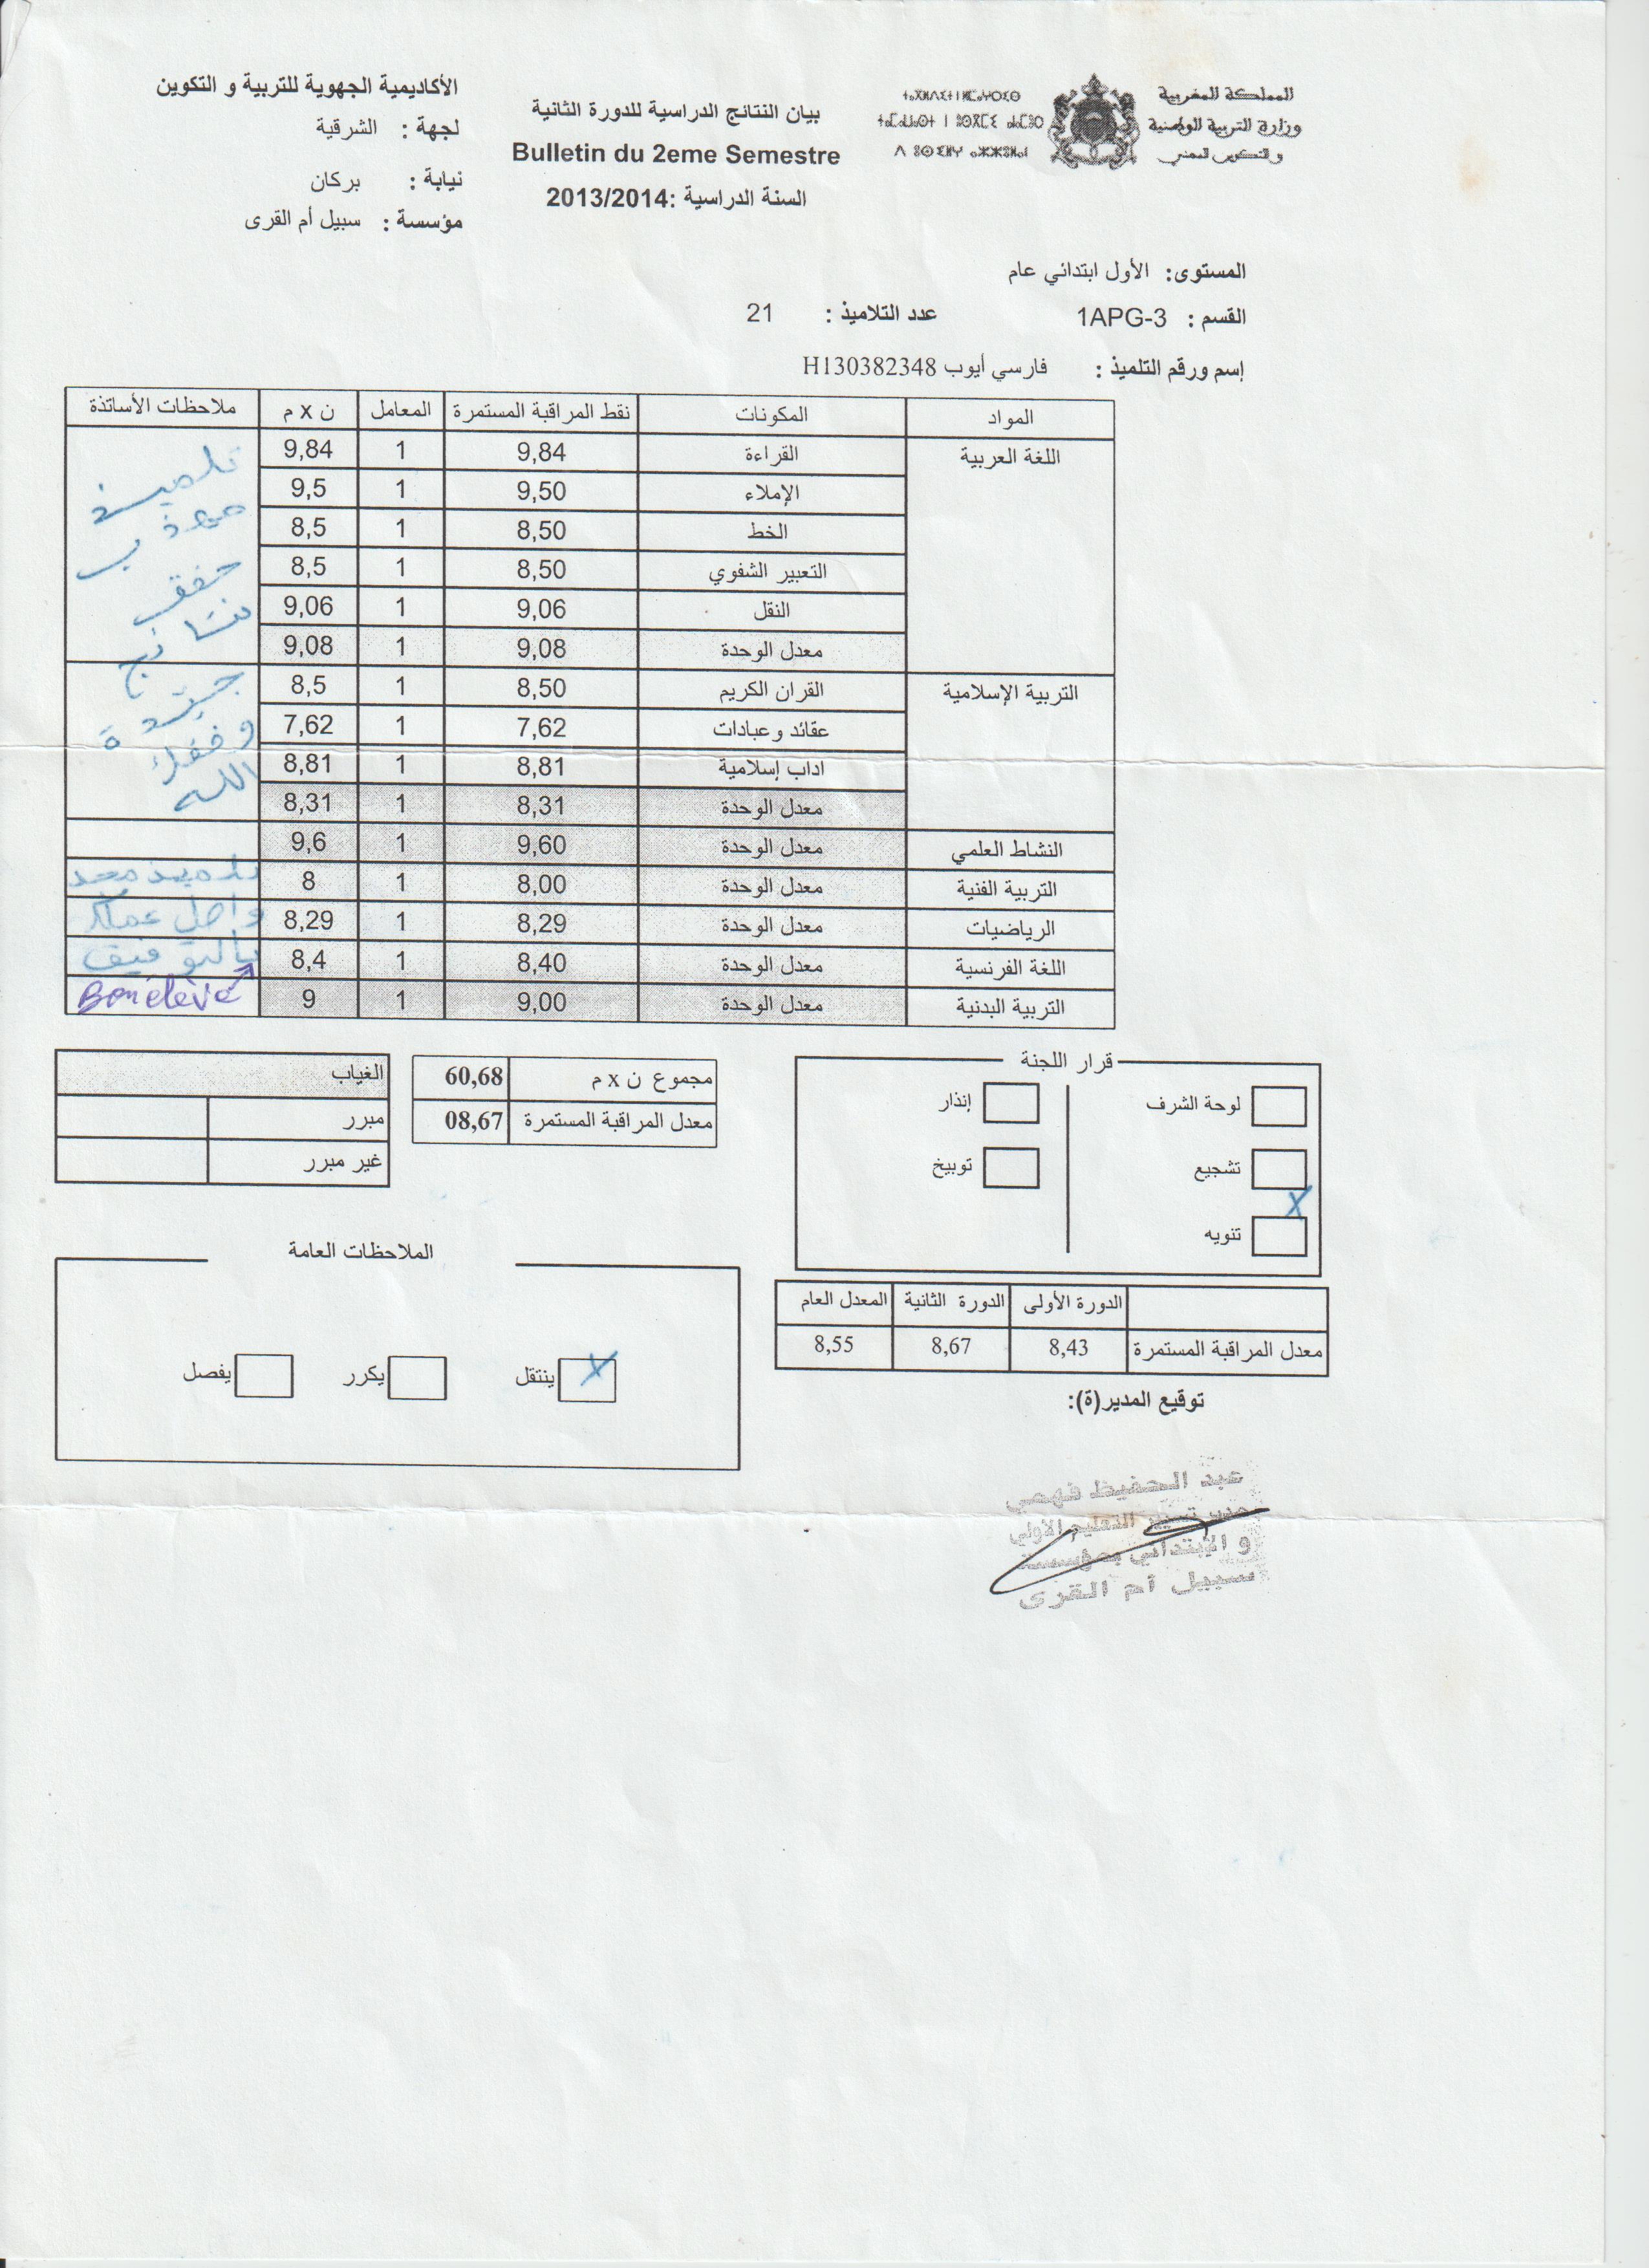 المملكة المغربية
وزارة التربية الوطنية
والتكوين المهني
ⵜⴰⴳⵍⴷⵉⵜ ⵏ ⵍⵎⵖⵔⵉⴱ
ⵜⴰⵎⴰⵡⴰⵙⵜ ⵏ ⵓⵙⴳⵎⵉ ⴰⵏⴰⵎⵓⵔ
ⴷ ⵓⵙⵎⵓⵜⵜⴳ ⴰⵣⵣⵓⵍⴰⵏ
بيان النتائج الدراسية للدورة الثانية
Bulletin du 2eme Semestre
السنة الدراسية :2013/2014
الأكاديمية الجهوية للتربية و التكوين
لجهة : الشرقية
نيابة : بركان
مؤسسة : سبيل أم القرى
المستوى: الأول ابتدائي عام
القسم : 1APG-3 عدد التلاميذ : 21
إسم ورقم التلميذ : فارسي أيوب H130382348
المواد المكونات نقط المراقبة المستمرة المعامل ن x م ملاحظات الأساتذة
اللغة العربية القراءة 9,84 1 9,84
الإملاء 9,50 1 9,5
الخط 8,50 1 8,5
التعبير الشفوي 8,50 1 8,5
النقل 9,06 1 9,06
معدل الوحدة 9,08 1 9,08
التربية الإسلامية القران الكريم 8,50 1 8,5
عقائد وعبادات 7,62 1 7,62
اداب إسلامية 8,81 1 8,81
معدل الوحدة 8,31 1 8,31
النشاط العلمي معدل الوحدة 9,60 1 9,6
التربية الفنية معدل الوحدة 8,00 1 8
الرياضيات معدل الوحدة 8,29 1 8,29
اللغة الفرنسية معدل الوحدة 8,40 1 8,4
التربية البدنية معدل الوحدة 9,00 1 9
تلميذ
مهذب
حقق
نتائج
جيدة
وفقك
الله
تلميذ مجد
واصل عملك
بالتوفيق
Bon élève
قرار اللجنة
لوحة الشرف إنذار
تشجيع توبيخ
X
تنويه
مجموع ن x م 60,68
معدل المراقبة المستمرة 08,67
الغياب
مبرر
غير مبرر
الدورة الأولى الدورة الثانية المعدل العام
معدل المراقبة المستمرة 8,43 8,67 8,55
الملاحظات العامة
X ينتقل يكرر يفصل
توقيع المدير(ة):
عبد الحفيظ فهمي
التعليم الأولي
و الإبتدائي بمؤسسة
سبيل أم القرى